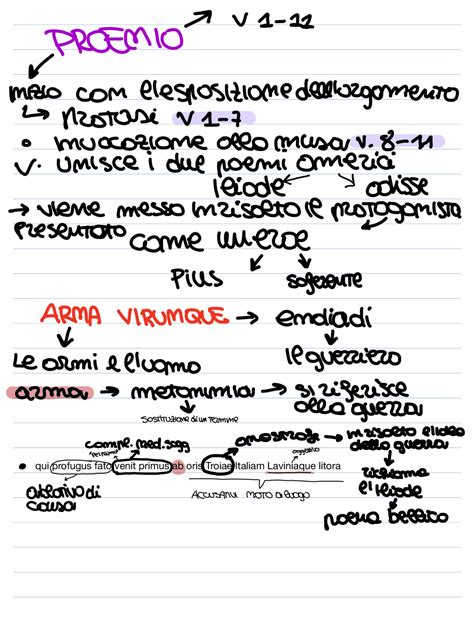 PROEMIO → V 1-11
inizio com l'esposizione dell'argomento
↳ Protasi V 1-7
• invocazione alla musa v. 8-11
V. unisce i due poemi omerici
Iliade odisse
→ viene messo in risalto il protagonista
presentato come un eroe
Pius sofferente
ARMA VIRUMQUE → endiadi
Le armi e l'uomo il guerriero
arma → metonimia → si riferisce alla guerra
sostituzione di un termine
compl. pred. sogg anastrofe → risalto
della guerra
• qui profugus fato venit primus ab oris Troiae Italiam Laviniaque litora
ablativo di causa
ACCUSATIVI MOTO a luogo
richiama l'Iliade
poema bellico